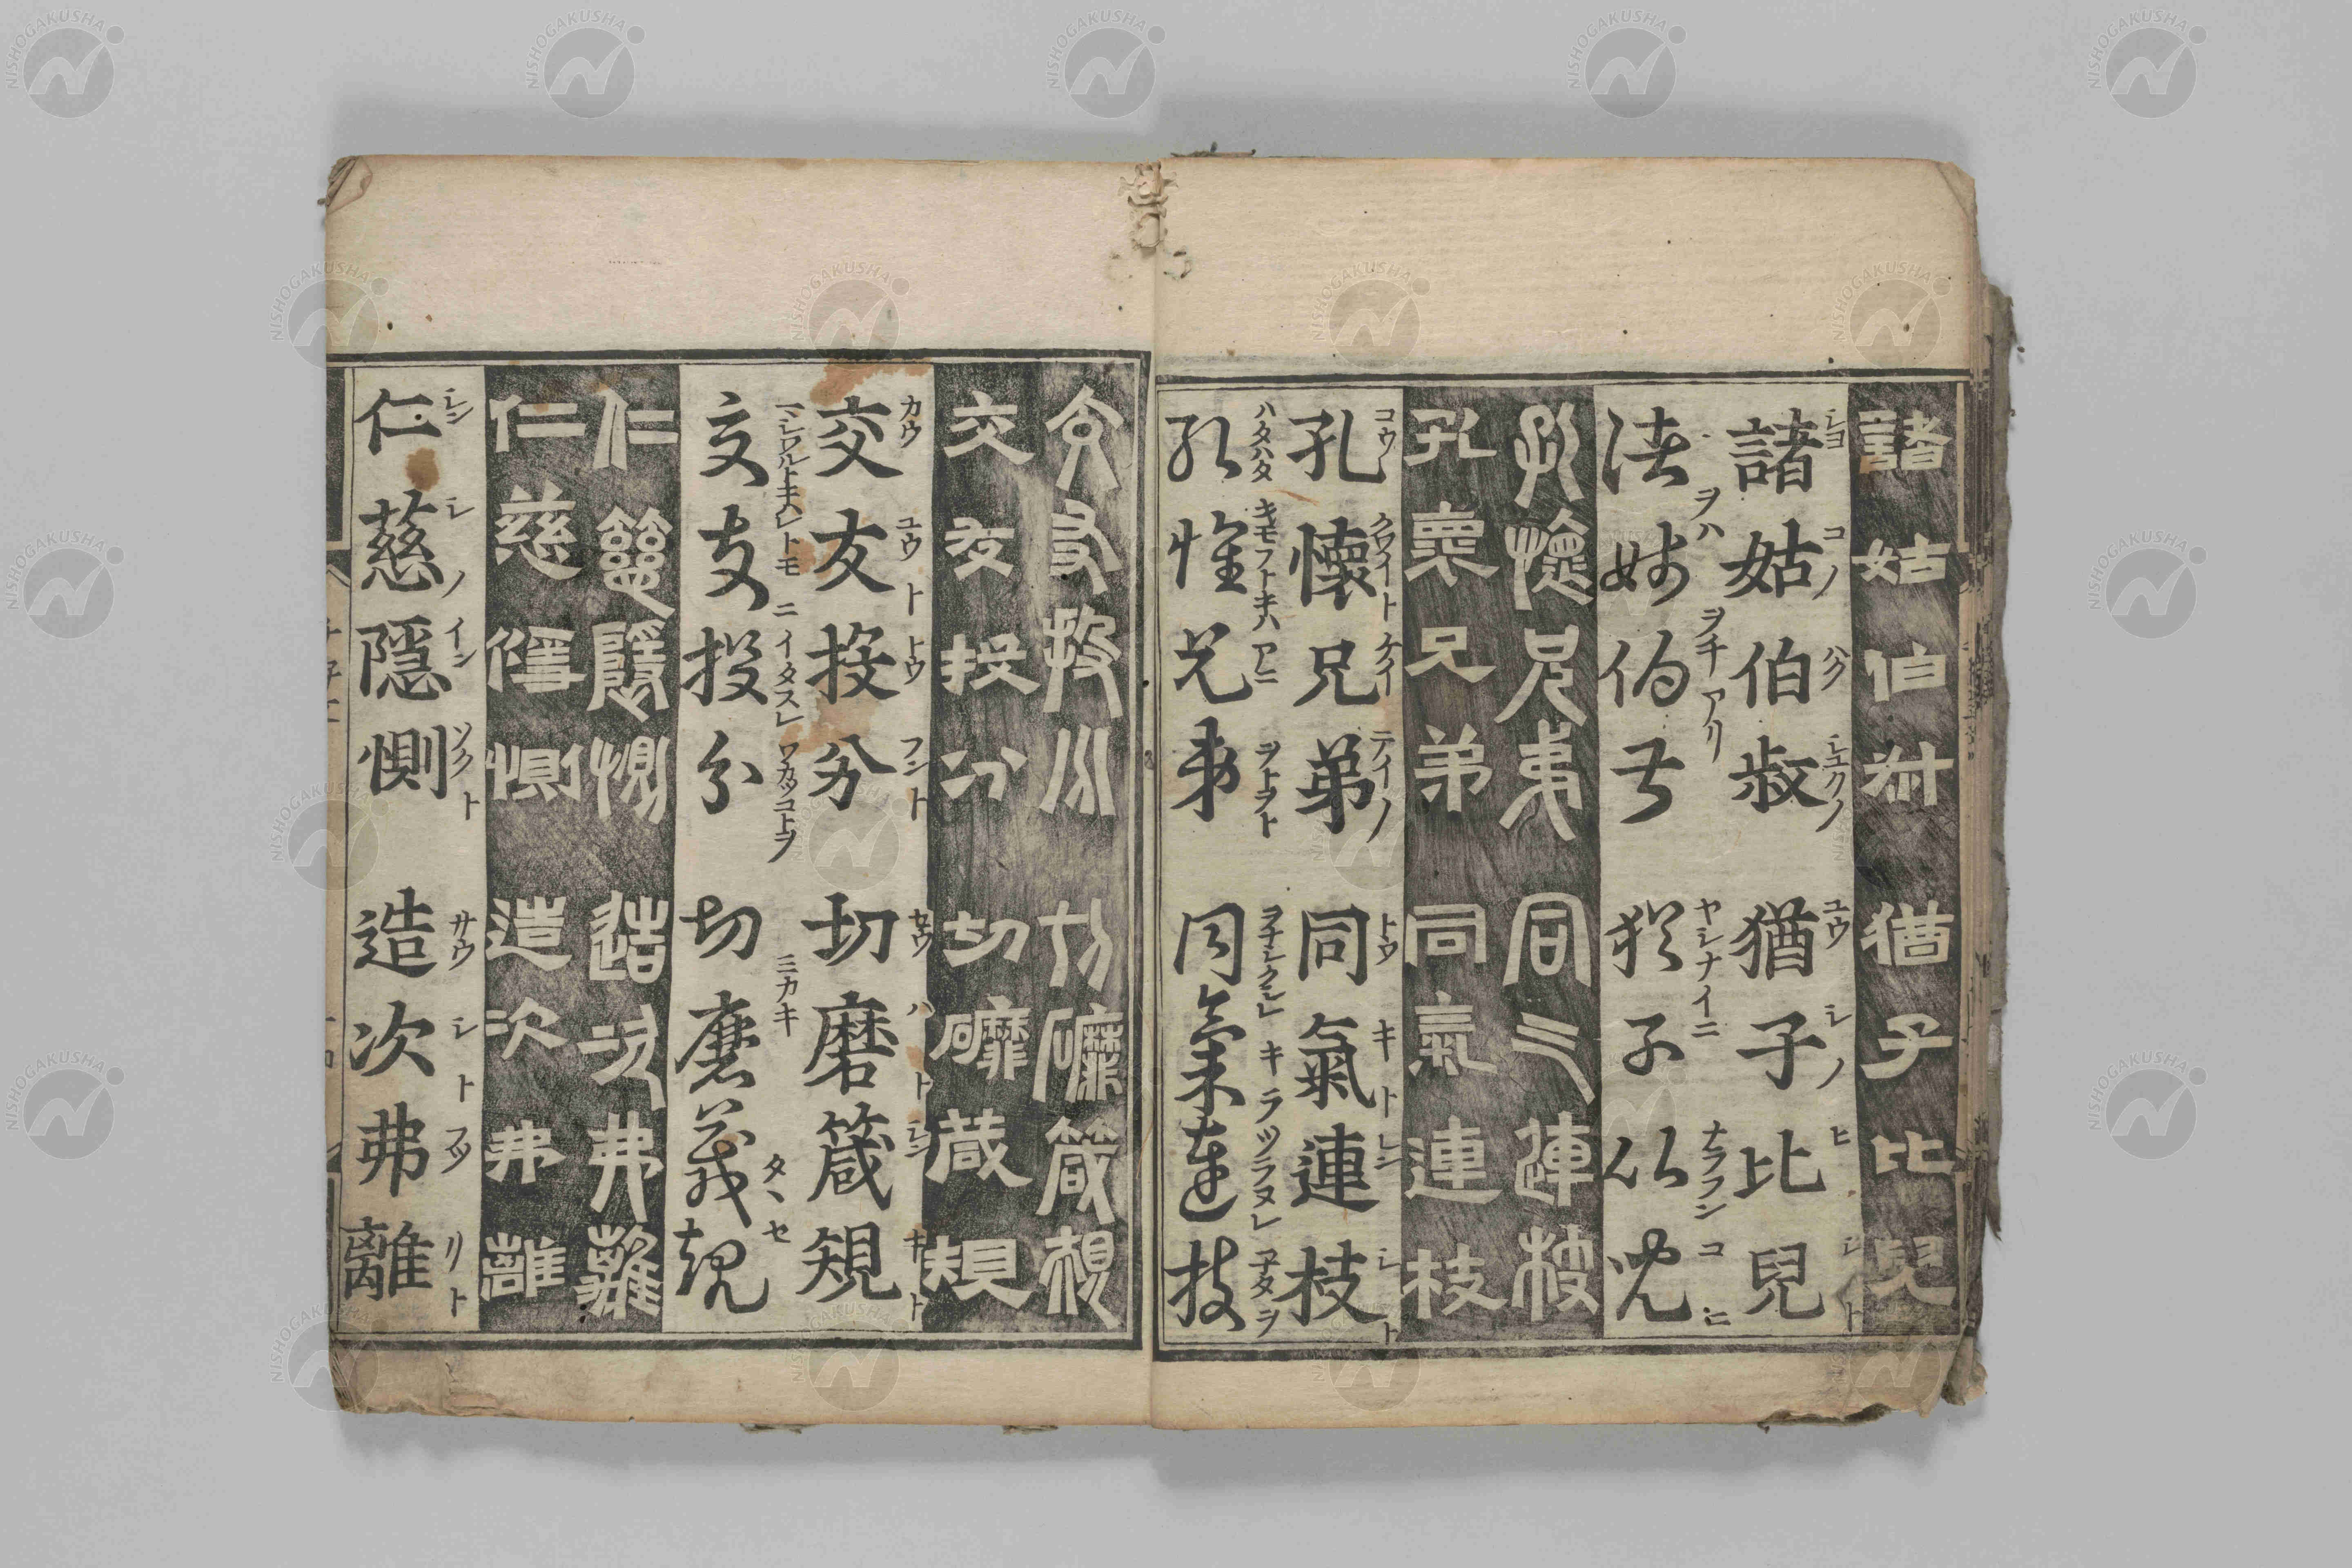 諸姑伯叔 猶子比兒
諸姑伯叔 猶子比兒
シヨ コノ ハク シユクノ ユウ シノ ヒ シト
諸姑伯叔 猶子比兒
ヲハ ヲチアリ ヤシナイニ ナラフン コニ
孔懷兄弟 同气連枝
孔褱兄弟 同氣連枝
孔懷兄弟 同氣連枝
コウ クワイト ケイ テイノ トウ キト レン シト
孔懷兄弟 同氣連枝
ハタハタ キモフトキハ アニ ヲトヲト ヲナシクシ キ ラツラヌレ ヱタヲ
交友投分 切磨箴規
交友投分 切磨箴規
交友投分 切磨箴規
カウ ユウト トウ フント セウ ハト シン キト
交友投分 切磨箴規
マシワルトキハ トモ ニ イタスレ ワカツコトヲ ミカキ タヽセ
仁慈隱惻 造次弗離
仁慈隱惻 造次弗離
仁慈隱惻 造次弗離
シン シノ イン ソクト サウ シト フツ リト
NISHOGAKUSHA